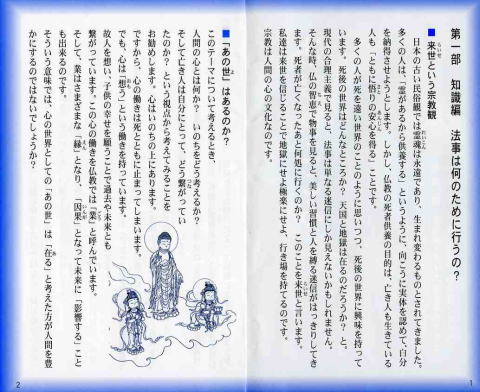 第一部　知識編　法事は何のために行うの？
■来世という宗教観
日本の古い民俗観では霊魂は永遠であり、生まれ変わるものとされてきました。
多くの人は、「霊があるから供養する」というように、向こうに実体を認めて、自分
を納得させようとします。しかし、仏教の死者供養の目的は、亡き人も生きている
人も「ともに悟りの安心を得る」ことです。
多くの人が死を遠い世界のことのように思いつつ、死後の世界に興味を持って
います。死後の世界はどんなところか？　天国と地獄は在るのだろうか？　と。
現代の合理主義で見ると、法事は単なる迷信にしか見えないかもしれません。
そんな時、仏の智恵で物事を見ると、美しい習慣と人を縛る迷信がはっきりしてき
ます。死者が亡くなったあと何処に行くのか？　このことを来世と言います。
私達は来世を信じることで地獄にせよ極楽にせよ、行き場を持てるのです。
宗教は人間の心の文化なのです。
1
■「あの世」はあるのか？
このテーマについて考えるとき、
人間の心とは何か？　いのちをどう考えるか？
そして亡き人は自分にとって、どう繋がってい
たのか？　という視点から考えてみることを
お勧めします。心はいのちの上にあります。
ですから、心の働きは死とともに止まってしまいます。
でも、心は「想う」という働きを持っています。
故人を想い、子供の幸せを願うことで過去や未来とも
繋がっています。この心の働きを仏教では「業」と呼んでいます。
そして、業はさまざまな「縁」となり、「因果」となって未来に「影響する」こと
も出来るのです。
そういう意味では、心の世界としての「あの世」は「在る」と考えた方が人間を豊
かにするのではないでしょうか？
2